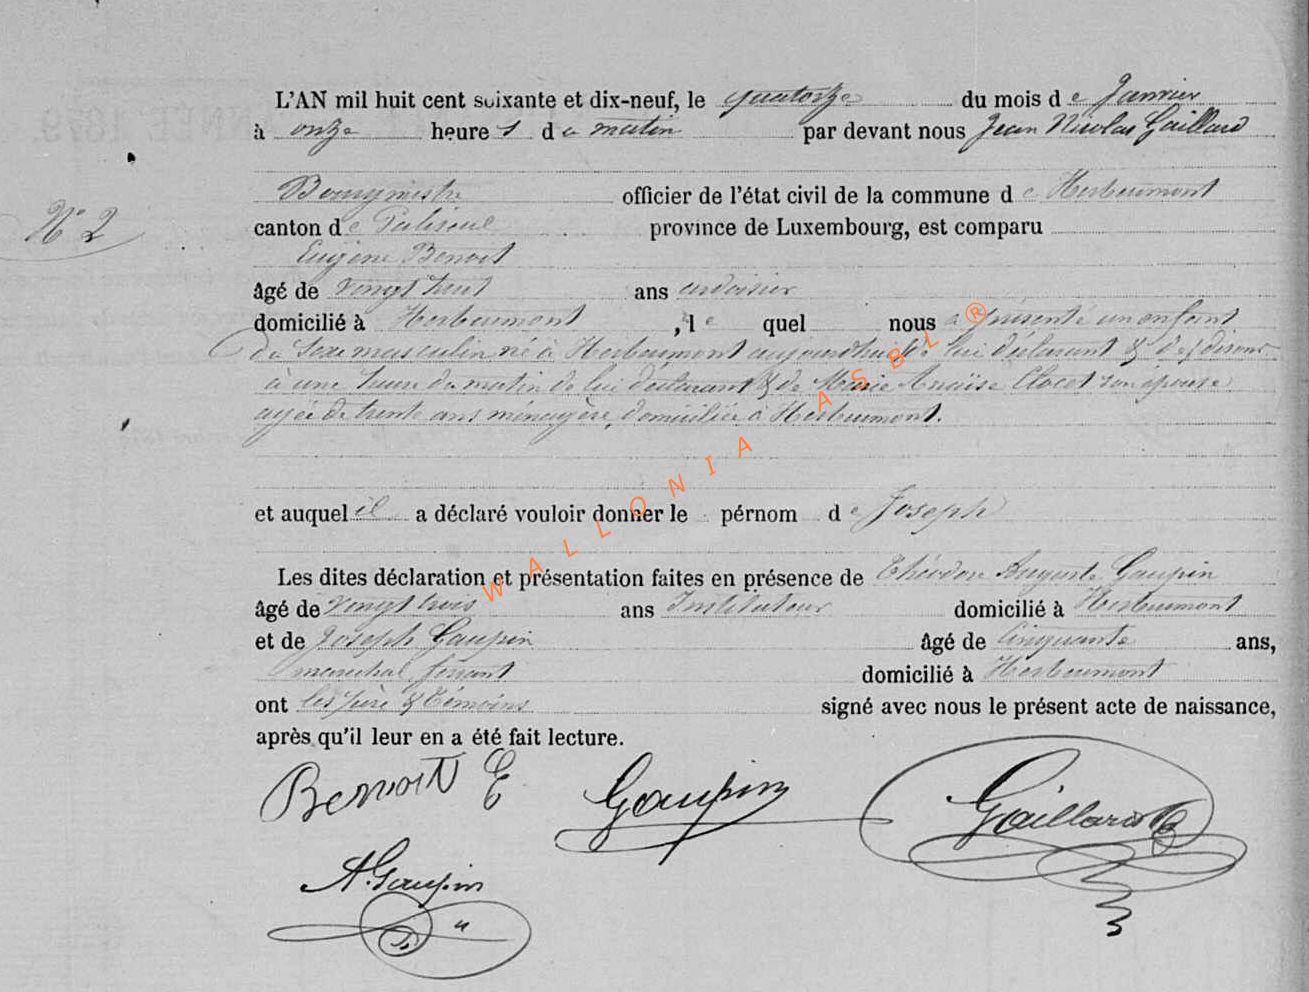 L'AN mil huit cent soixante et dix-neuf, le quatorze du mois de Janvier
à onze heures du matin par devant nous Jean Nicolas Gaillard
Bourgmestre officier de l'état civil de la commune de Herbeumont
N° 2
canton de Paliseul province de Luxembourg, est comparu
Eugène Benoit
âgé de vingt huit ans ardoisier
domicilié à Herbeumont, le quel nous a présenté un enfant
du sexe masculin né à Herbeumont aujourd'hui de lui déclarant &
à une heure du matin de lui déclarant & de Marie Anaïse Clocet son épouse
agée de trente ans ménagère, domiciliée à Herbeumont.
et auquel il a déclaré vouloir donner le pérnom de Joseph
Les dites déclaration et présentation faites en présence de Théodore Auguste Gaupin
âgé de vingt trois ans Instituteur domicilié à Herbeumont
et de Joseph Gaupin âgé de Cinquante ans,
marechal ferrant domicilié à Herbeumont
ont les père & témoins signé avec nous le présent acte de naissance,
après qu'il leur en a été fait lecture.
Benoit E Gaupin Gaillard
A. Gaupin
WALLONIA ASBL ®